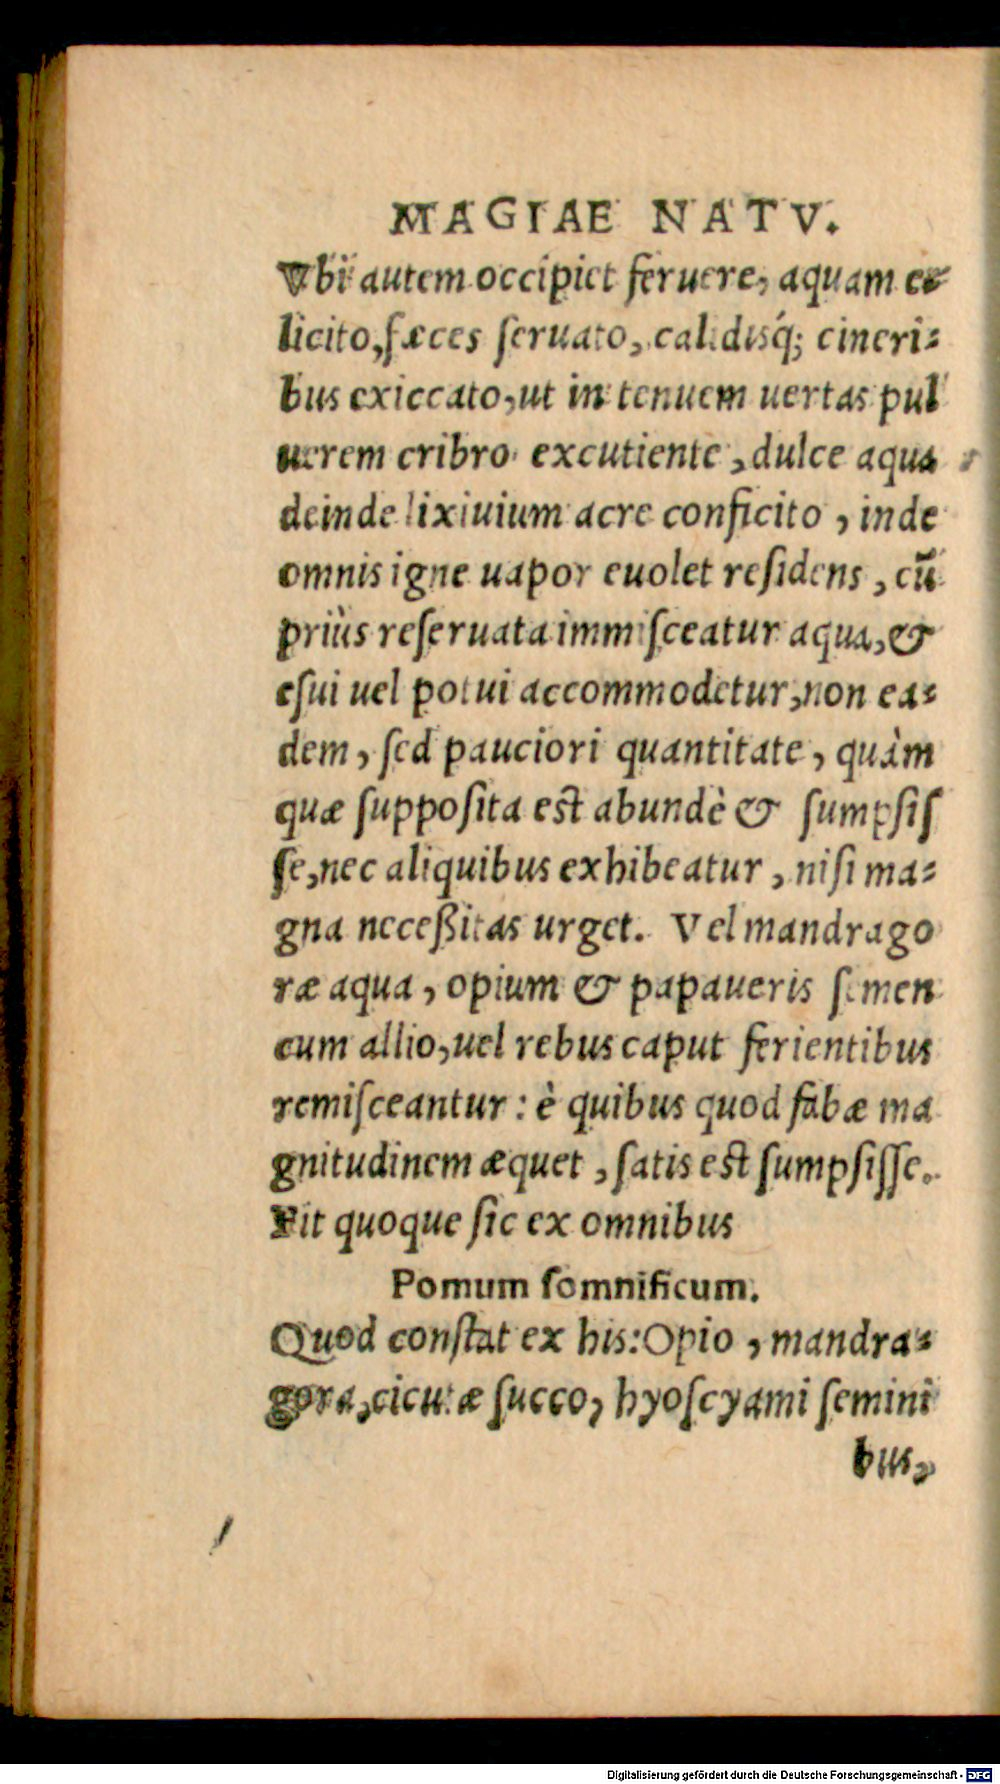 MAGIAE NATV.
Vbi autem occipiet feruere, aquam e-
licito, fæces ſeruato, calidisq́; cineri-
bus exiccato, ut in tenuem uertas pul
uerem cribro excutiente, dulce aqua
deinde lixiuium acre conficito, inde
omnis igne uapor euolet reſidens, cū
priùs reſeruata immiſceatur aqua, &
eſui uel potui accommodetur, non ea-
dem, ſed pauciori quantitate, quàm
quæ ſuppoſita est abundè & ſumpſiſ
ſe, nec aliquibus exhibeatur, niſi ma-
gna neceßitas urget. Vel mandrago
ræ aqua, opium & papaueris ſemen
cum allio, uel rebus caput ferientibus
remiſceantur: è quibus quod fabæ ma
gnitudinem æquet, ſatis est ſumpſiſſe.
Fit quoque ſic ex omnibus
Pomum ſomnificum.
Quod conſtat ex his: Opio, mandra-
gora, cicutæ ſucco, hyoſcyami ſemini
bus,
Digitalisierung gefördert durch die Deutsche Forschungsgemeinschaft - DFG